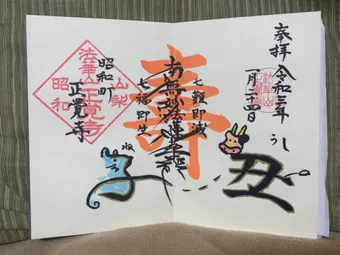 奉拝
令和三年
うし
一月二十四日
丑
壽
七難即滅
南無妙法蓮華経
七福即生
ね
山梨
法華山正覺寺
昭和
昭和町
正覺寺